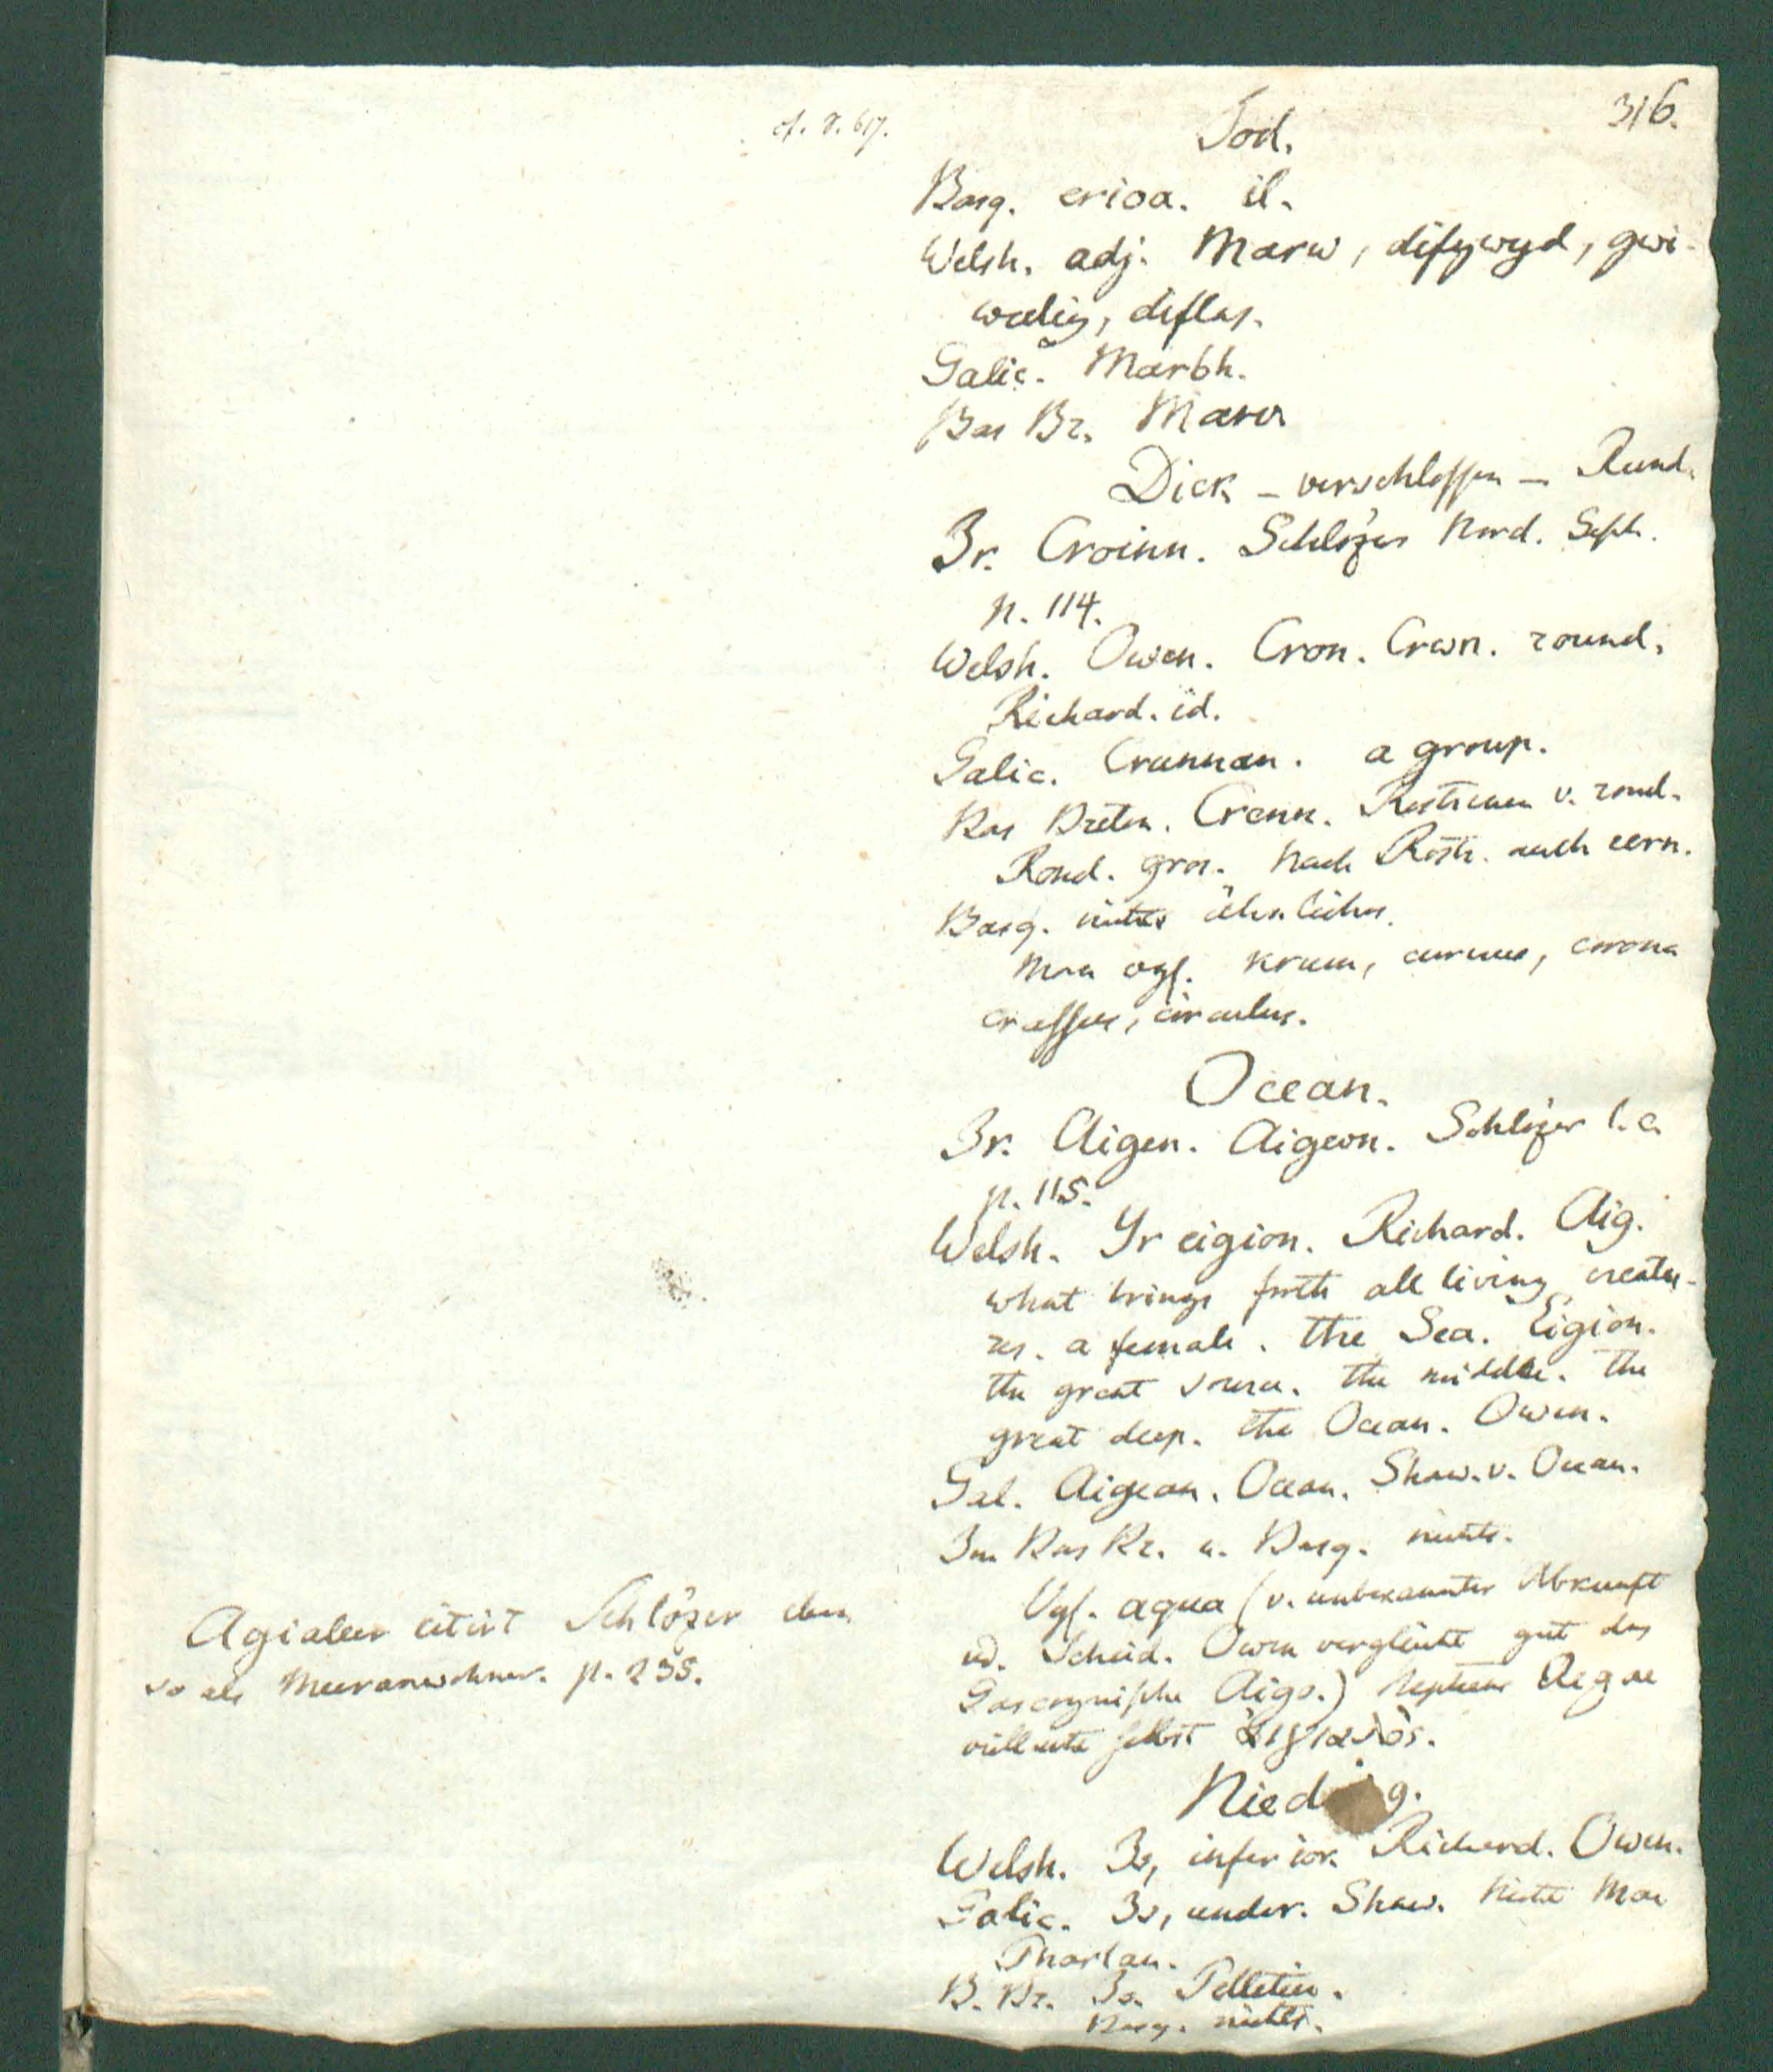 316.
Tod.
Basq. erioa. il.
Welsh. adj. Marw, difywyd, gwi-
wedig, diflas.
Galic. Marbh.
Bas Br. Marw
Dick – verschlossen – Rund.
Ir. Croinn. Schlözer Nord. Gesch.
p. 114.
Welsh. Owen. Cron. Crwn. round.
Richard. id.
Galic. Crunnan. a group.
Bas Breton. Crenn. Rostrenen v. rond.
Rond. gros. Nach Rostr. auch cern.
Basq. nichts ähnliches.
Man vgl. krum, curvus, corona
crassus, circulus.
Ocean.
Ir. Aigen. Aigeon. Schlözer l. c.
p. 115.
Welsh. Yr eigion. Richard. Aig.
what brings forth all living creatu-
res. a female. the Sea. Eigion.
the great source. the middle. the
great deep. the Ocean. Owen.
Gal. Aigean. Ocean. Shaw. v. Ocean.
Im Bas Br. u. Basq. nichts.
Vgl. aqua (v. unbekannter Abkunft
Scheid. Owen vergleicht gut das
Gascognische Aigo.) Aegae
vielleicht selbst αἰγιαλός.
Agialeer citirt Schlözer eben
so als Meeranwohner. p. 235.
Niedrig.
Welsh. Is, inferior. Richard. Owen.
Galic. Is, under. Shaw. Nicht Mac
Pharlan.
B. Br. Is. Pelletier.
Basq. nichts.